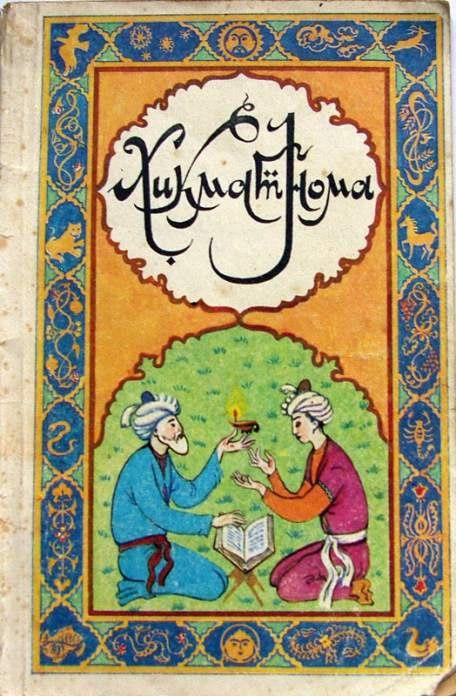 Ҳикматнома